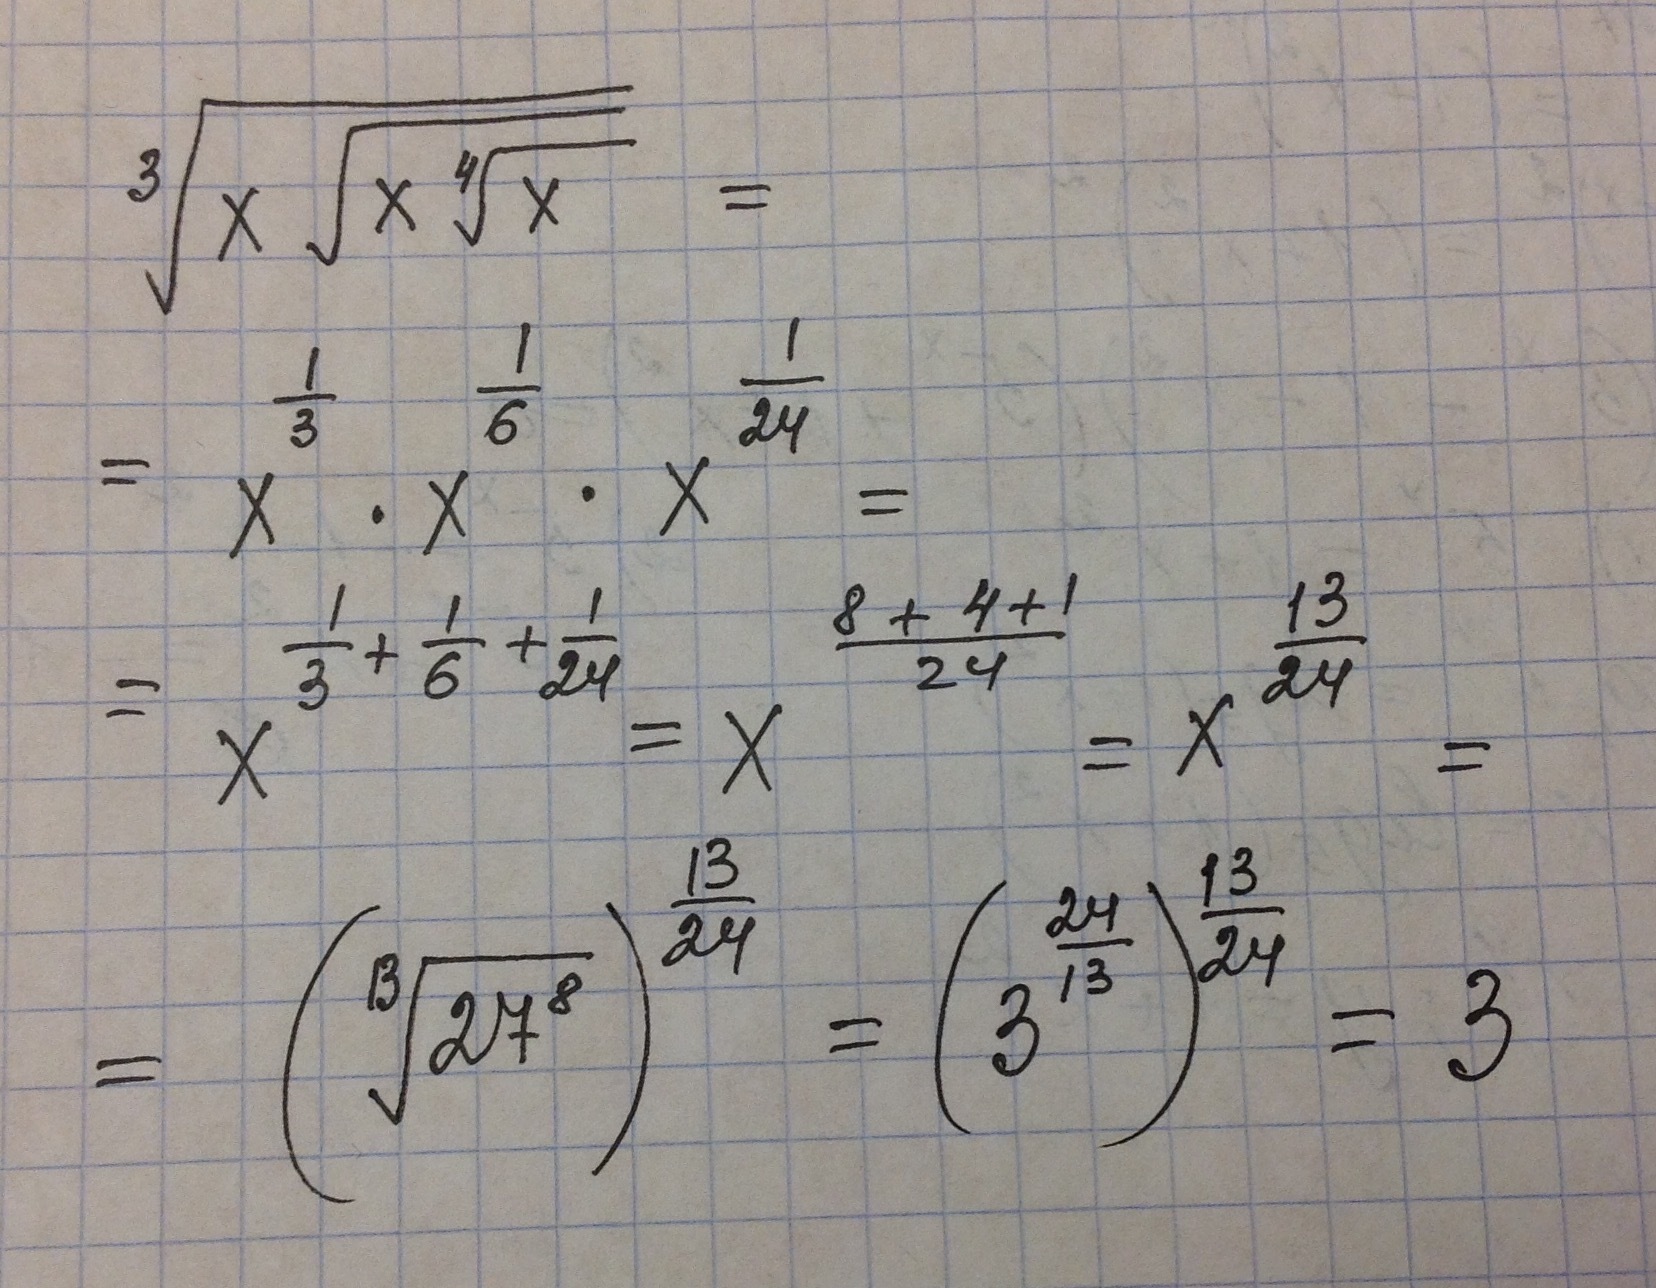 ∛(x √(x ∜x)) =
= x^(1/3) · x^(1/6) · x^(1/24) =
= x^(1/3 + 1/6 + 1/24) = x^((8 + 4 + 1)/24) = x^(13/24) =
= (¹³√(27⁸))^(13/24) = (3^(24/13))^(13/24) = 3